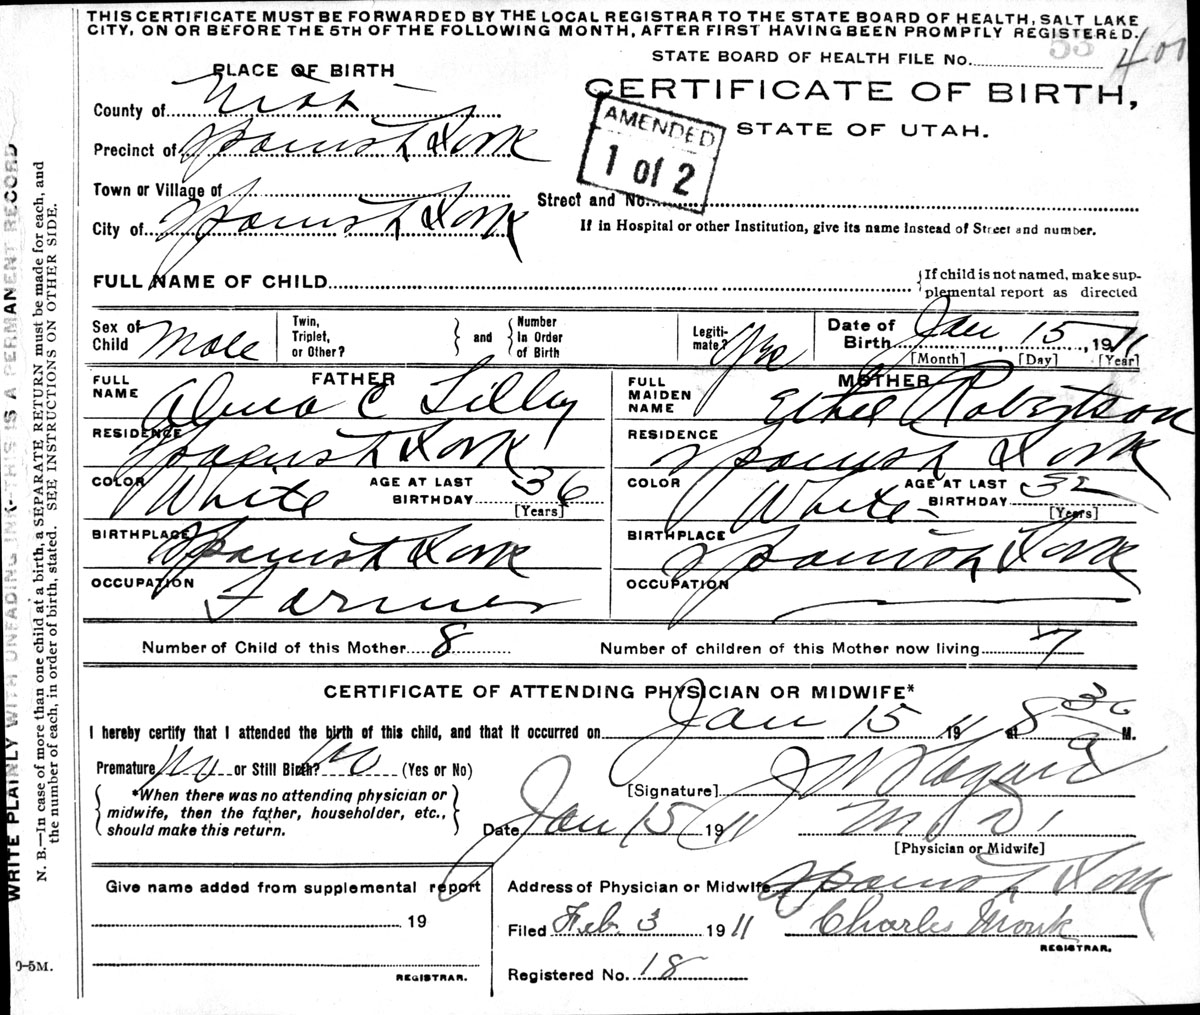 THIS CERTIFICATE MUST BE FORWARDED BY THE LOCAL REGISTRAR TO THE STATE BOARD OF HEALTH, SALT LAKE
CITY, ON OR BEFORE THE 5TH OF THE FOLLOWING MONTH, AFTER FIRST HAVING BEEN PROMPTLY REGISTERED.
STATE BOARD OF HEALTH FILE No. 53
PLACE OF BIRTH
CERTIFICATE OF BIRTH,
STATE OF UTAH.
AMENDED
1 of 2
County of Utah
Precinct of Spanish Fork
Town or Village of
Street and No.
City of Spanish Fork
If in Hospital or other Institution, give its name Instead of Street and number.
FULL NAME OF CHILD
{If child is not named, make sup-
plemental report as directed
Sex of Child Male
Twin, Triplet, or Other?
} and {
Number In Order of Birth
Legiti-mate? Yes
Date of Birth Jan 15, 1911
[Month] [Day] [Year]
FATHER
FULL NAME Alma C Lilly
RESIDENCE Spanish Fork
COLOR White AGE AT LAST BIRTHDAY 36
[Years]
BIRTHPLACE Spanish Fork
OCCUPATION Farmer
MOTHER
FULL MAIDEN NAME Ethel Robertson
RESIDENCE Spanish Fork
COLOR White AGE AT LAST BIRTHDAY 32
[Years]
BIRTHPLACE Spanish Fork
OCCUPATION
Number of Child of this Mother 8 Number of children of this Mother now living 7
CERTIFICATE OF ATTENDING PHYSICIAN OR MIDWIFE*
I hereby certify that I attended the birth of this child, and that it occurred on Jan 15 1911 at 8 30 a M.
Premature No or Still Birth? No (Yes or No)
{*When there was no attending physician or
midwife, then the father, householder, etc.,
should make this return.}
[Signature]
Date Jan 15 1911 M. D.
[Physician or Midwife]
Give name added from supplemental report
19
REGISTRAR.
Address of Physician or Midwife Spanish Fork
Filed Feb. 3 1911 Charles Monk
REGISTRAR.
Registered No. 18
WRITE PLAINLY WITH UNFADING INK-THIS IS A PERMANENT RECORD
N. B.—In case of more than one child at a birth, a SEPARATE RETURN must be made for each, and
the number of each, in order of birth, stated. SEE INSTRUCTIONS ON OTHER SIDE.
0-5M.